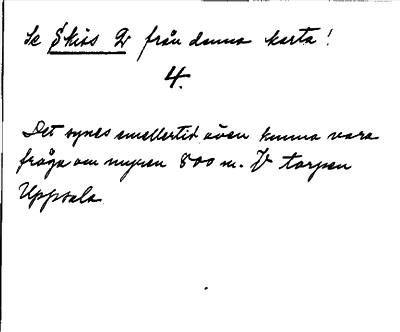 Se Skiss 2 från denna karta!
4.
Det synes emellertid även kunna vara
fråga om myren 800 m. V torpen
Uppsala